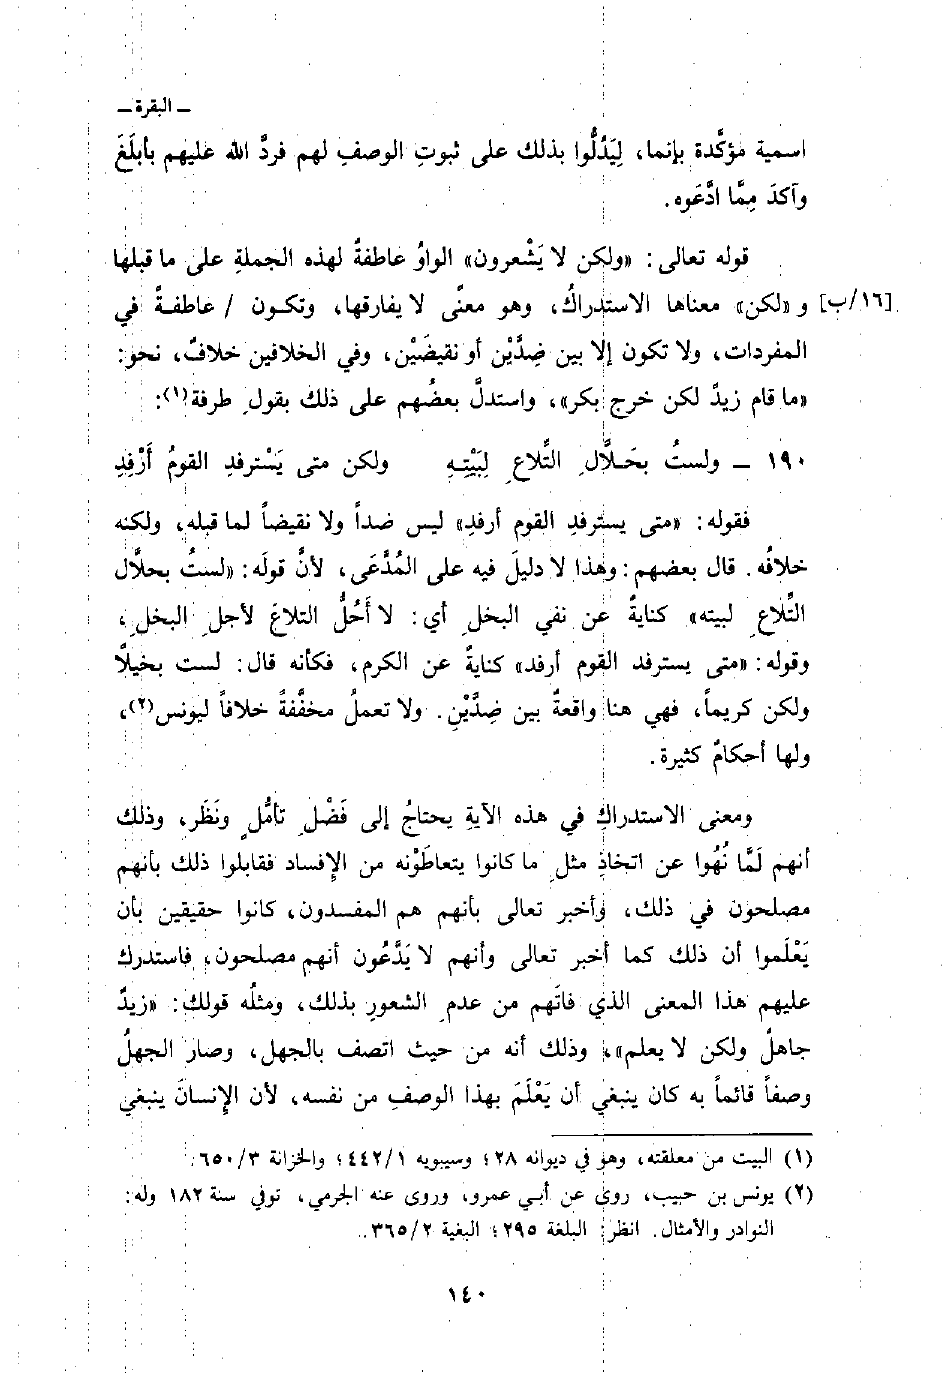 ـ البقرة ـ
اسمية مؤكَّدة بإنما، لِيَدُلُّوا بذلك على ثبوتِ الوصفِ لهم فردَّ الله عليهم بأبلَغَ
وآكدَ مِمَّا ادَّعَوه.
قوله تعالى: «ولكن لا يَشْعرون» الواوُ عاطفةٌ لهذه الجملةِ على ما قبلها
[١٦/ب] و «لكن» معناها الاستدراكُ، وهو معنًى لا يفارقها، وتكون / عاطفةً في
المفردات، ولا تكون إلا بين ضِدَّيْن أو نقيضَيْن، وفي الخلافين خلافٌ، نحو:
«ما قام زيدٌ لكن خرج بكر»، واستدلَّ بعضُهم على ذلك بقولِ طرفة(١):
١٩٠ ـ ولستُ بحَلاَّلِ التِّلاعِ لِبَيْتِهِ ولكن متى يَسْترفدِ القومُ أَرْفِدِ
فقوله: «متى يسترفدِ القوم أرفدِ» ليس ضداً ولا نقيضاً لما قبله، ولكنه
خلافُه. قال بعضهم: وهذا لا دليلَ فيه على المُدَّعَى، لأنَّ قولَه: «لستُ بحلاَّل
التِّلاعِ لبيته» كنايةٌ عن نفي البخلِ أي: لا أَحُلُّ التلاعَ لأجلِ البخلِ،
وقوله: «متى يسترفد القوم أرفد» كنايةٌ عن الكرم، فكأنه قال: لست بخيلاً
ولكن كريماً، فهي هنا واقعةٌ بين ضِدَّيْنِ. ولا تعملُ مخفَّفةً خلافاً ليونس(٢)،
ولها أحكامٌ كثيرة.
ومعنى الاستدراكِ في هذه الآيةِ يحتاجُ إلى فَضْلِ تأمُّلٍ ونَظَر، وذلك
أنهم لَمَّا نُهُوا عن اتخاذِ مثلِ ما كانوا يتعاطَوْنه من الإفساد فقابلوا ذلك بأنهم
مصلحون في ذلك، وأخبر تعالى بأنهم هم المفسدون، كانوا حقيقين بأن
يَعْلَموا أن ذلك كما أخبر تعالى وأنهم لا يَدَّعُون أنهم مصلحون، فاستدرك
عليهم هذا المعنى الذي فاتَهم من عدمِ الشعورِ بذلك، ومثلُه قولك: «زيدٌ
جاهلٌ ولكن لا يعلم»، وذلك أنه من حيث اتصف بالجهل، وصار الجهلُ
وصفاً قائماً به كان ينبغي أن يَعْلَمَ بهذا الوصفِ من نفسه، لأن الإنسانَ ينبغي
(١) البيت من معلقته، وهو في ديوانه ٢٨؛ وسيبويه ٤٤٢/١؛ والخزانة ٦٥٠/٣.
(٢) يونس بن حبيب، روى عن أبي عمرو، وروى عنه الجرمي، توفي سنة ١٨٢ وله:
النوادر والأمثال. انظر: البلغة ٢٩٥؛ البغية ٣٦٥/٢.
١٤٠